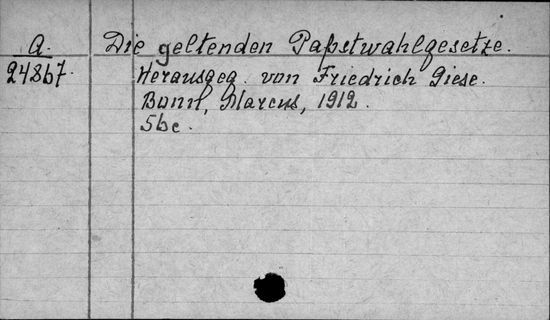 A.
24867.
Die geltenden Papstwahlgesetze.
Herausgeg. von Friedrich Giese.
Bonn, Marcus, 1912.
56c.